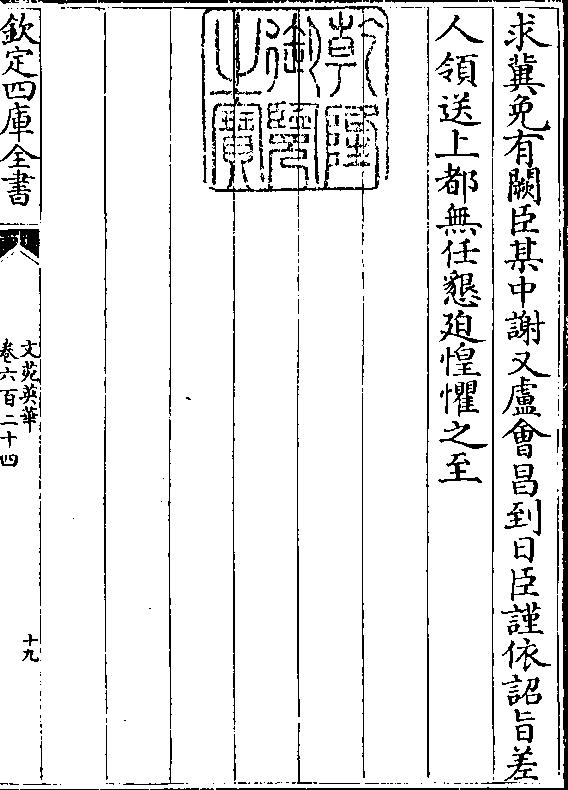 求冀免有闕臣某中謝又盧會昌到日臣謹依詔旨差
人領送上都無任懇迫惶懼之至
乾隆御覽之寶
欽定四庫全書
文苑英華
卷六百二十四
十九